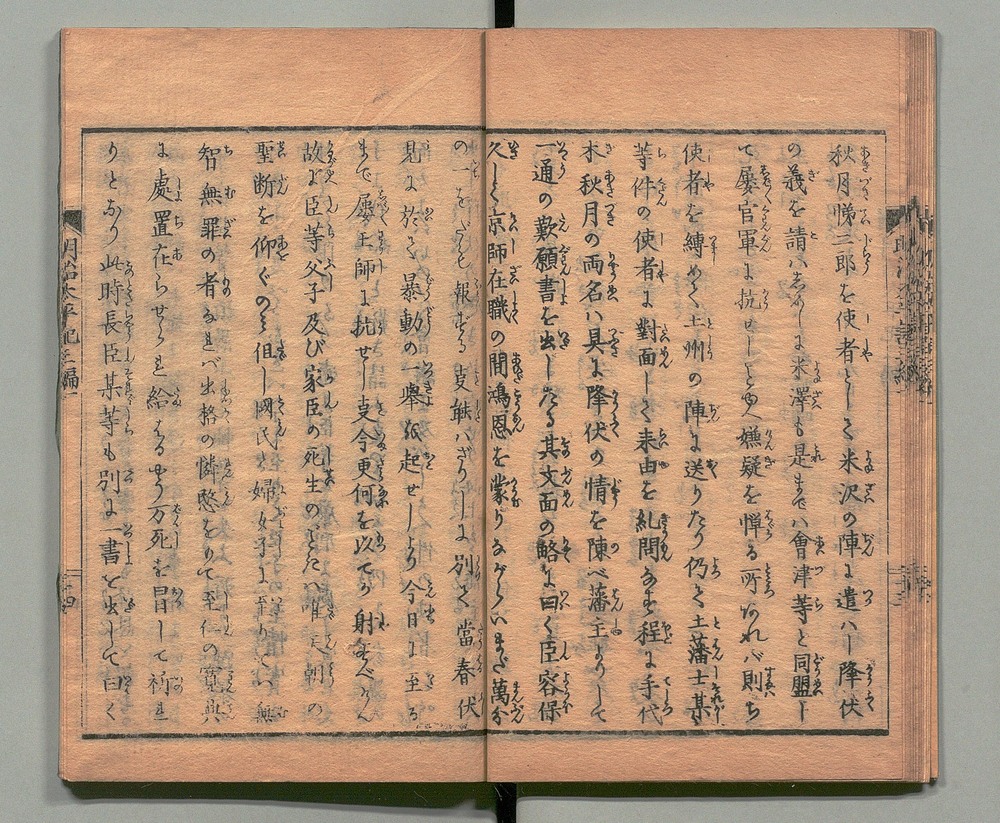 秋月悌二郎を使者として米沢の陣に遣ハし降伏
の義を請ハしめしに米澤も是までハ會津等と同盟し
て屡官軍に抗せしと雖嫌疑を憚る所あれバ則ち
使者を縛めて土州の陣に送りたり仍て土藩士某
等件の使者に對面して来由を糺問なす程に手代
木秋月の両名ハ具に降伏の情を陳べ藩主よりして
一通の歎願書を出したる其文面の略に曰く臣容保
久しく京師在職の間鴻恩を蒙りながらいまだ萬分
の一をだも報ずる事能ハざりしに別て當春伏
見に於て暴動の一擧を起せしより今日に至る
まで屡王師に抗せし事今更何を以てか射すべけん
故に臣等父子及び家臣の死生のごときハ唯天朝の
聖断を仰ぐのミ但し國民と婦女子に至りてハ無
智無罪の者なれバ出格の憐愍をもて至仁の寛典
に處置在らせられ給はる様万死を冒して祈れ
りとなり此時長臣某等も別に一書を出して曰く
明治太平記三編
二十四